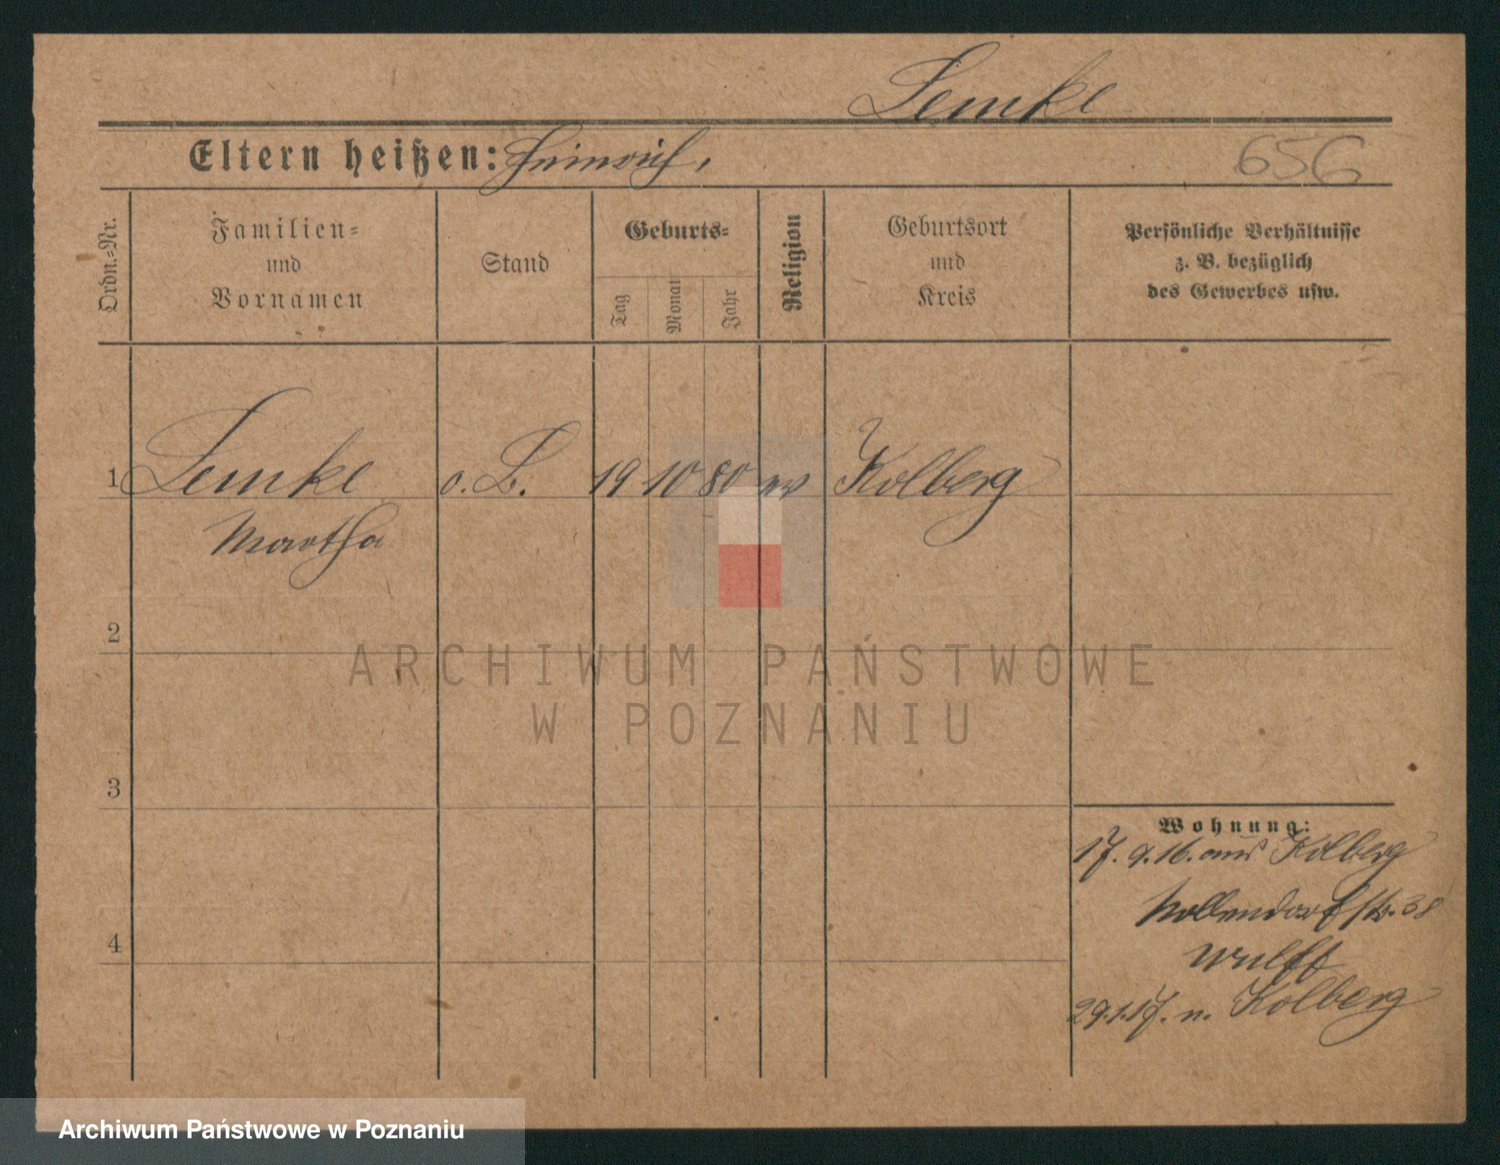 Lemke
Eltern heißen: Heinrich,
656
Ordn.-Nr.
Familien-
und
Vornamen
Stand
Geburts-
Tag
Monat
Jahr
Religion
Geburtsort
und
Kreis
Persönliche Verhältnisse
z. B. bezüglich
des Gewerbes usw.
1 Lemke o. B. 19 10 80 ev Kolberg
Martha
2
ARCHIWUM PAŃSTWOWE
W POZNANIU
3
Wohnung:
17. 9. 16. aus Kolberg
Nollendorfstr. 38
Wulff
4
29.1.17. n. Kolberg
Archiwum Państwowe w Poznaniu